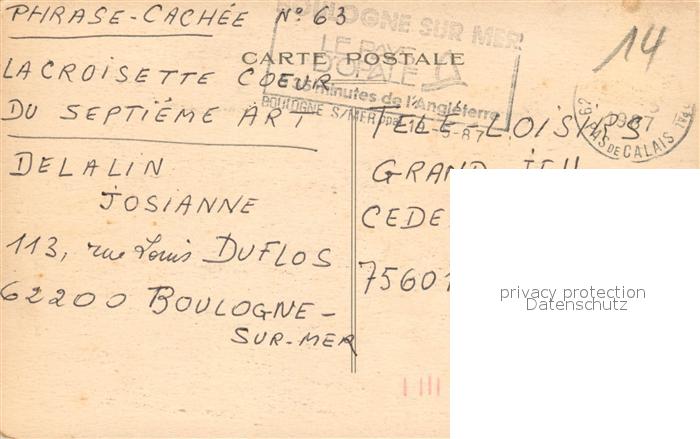 PHRASE-CACHÉE N° 63
LA CROISETTE COEUR
DU SEPTIÉME ART
DELALIN
JOSIANNE
113, rue Louis DUFLOS
62200 BOULOGNE-
SUR-MER
BOULOGNE SUR MER
LE PAYS
D'OPALE
35 minutes de l'Angleterre
BOULOGNE S/MER PPAL 14-5-87
CARTE POSTALE
14
62
1987
PAS DE CALAIS
TÉLÉ-LOISIRS
GRAND JEU
CEDE
7560
privacy protection
Datenschutz